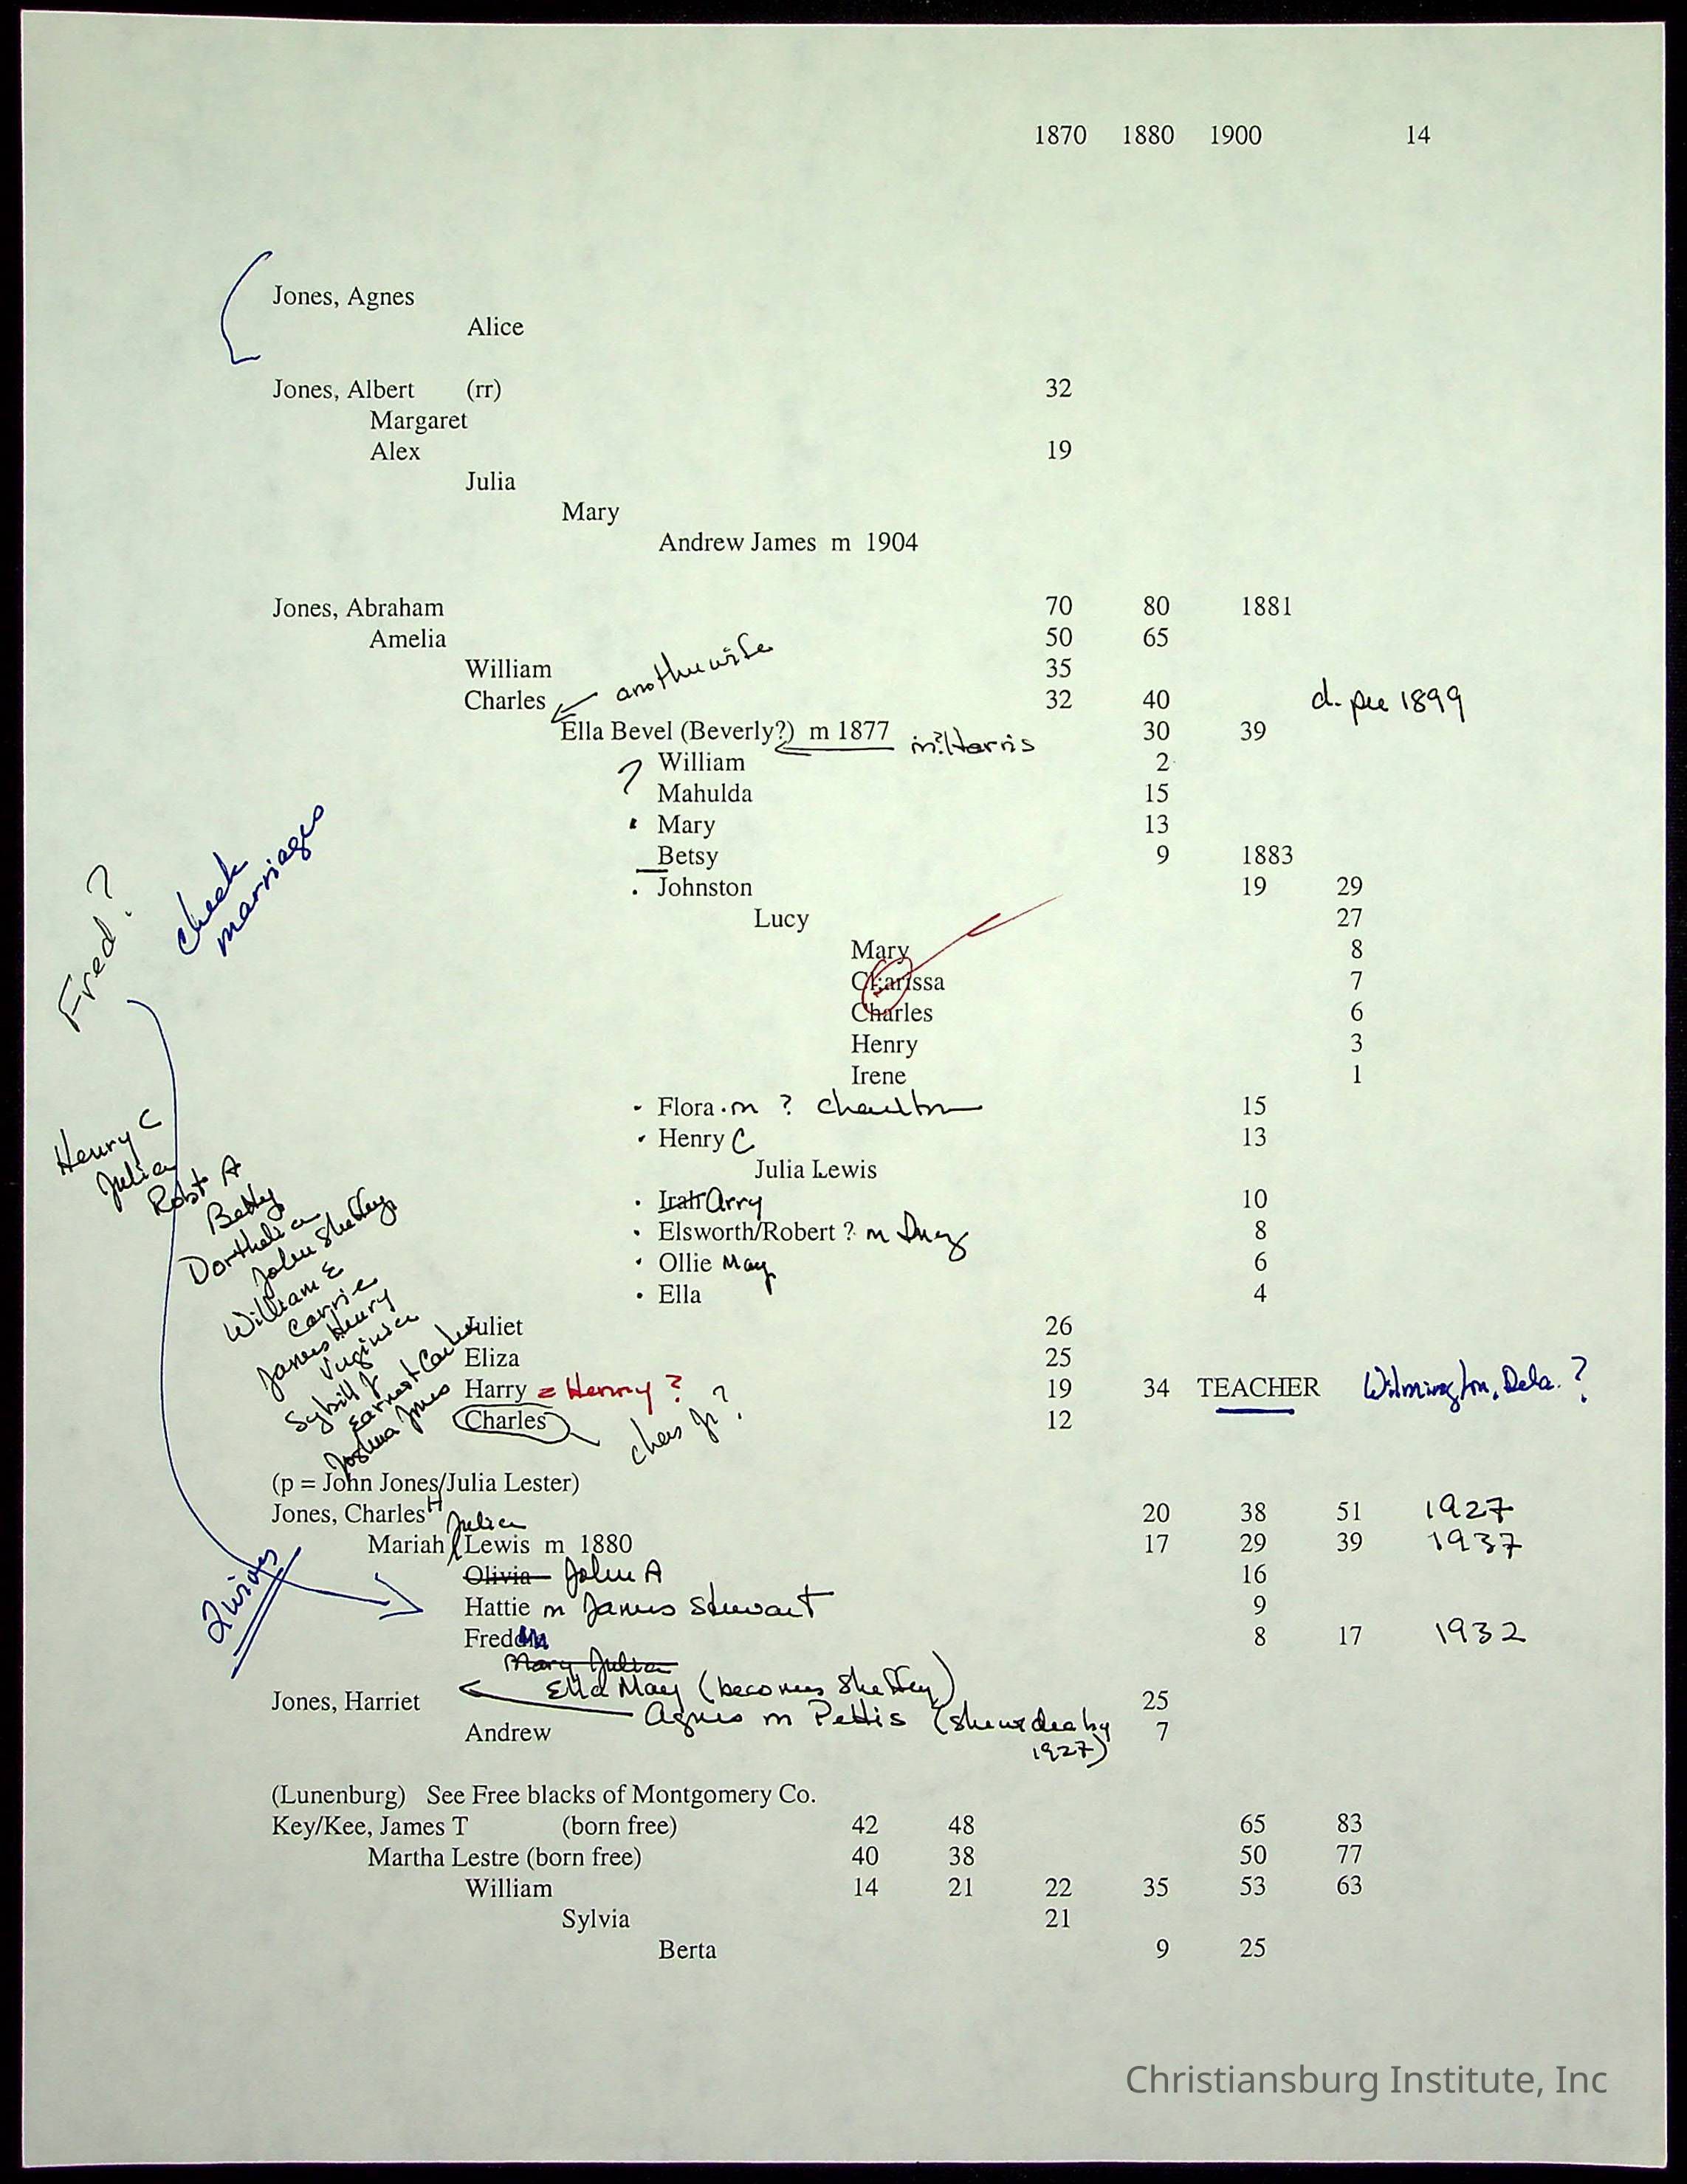 1870 1880 1900 14
Jones, Agnes
Alice
Jones, Albert (rr) 32
Margaret
Alex 19
Julia
Mary
Andrew James m 1904
Jones, Abraham 70 80 1881
Amelia 50 65
another wife
William 35
Charles 32 40 d. pre 1899
Ella Bevel (Beverly?) m 1877 m? Harris 30 39
? William 2
Mahulda 15
Mary 13
Betsy 9 1883
Johnston 19 29
Lucy 27
Mary 8
Clarissa 7
Charles 6
Henry 3
Irene 1
Flora m ? Charlton 15
Henry C 13
Julia Lewis
Irah Arry 10
Elsworth/Robert ? m 8
Ollie May 6
Ella 4
Juliet 26
Eliza 25
Harry = Henry ? 19 34 TEACHER Wilmington, Dela. ?
Charles chas Jr ? 12
(p = John Jones/Julia Lester)
Jones, Charles H 20 38 51 1927
Mariah Julia Lewis m 1880 17 29 39 1937
Olivia John A 16
Hattie m James Stewart 9
Fred 8 17 1932
Mary Julia
Ella May (becomes Sheffey)
Jones, Harriet 25
Agnes m Pettis (she was dea by
1927)
Andrew 7
(Lunenburg) See Free blacks of Montgomery Co.
Key/Kee, James T (born free) 42 48 65 83
Martha Lestre (born free) 40 38 50 77
William 14 21 22 35 53 63
Sylvia 21
Berta 9 25
check
marriages
Fred ?
Henry C
Julia
Robt A
Betty
Dorthelia
John Sheffey
William E
Carrie
James Henry
Virginia
Sybill J
Earnest Carter
Joshua Jones
2 wives
Christiansburg Institute, Inc